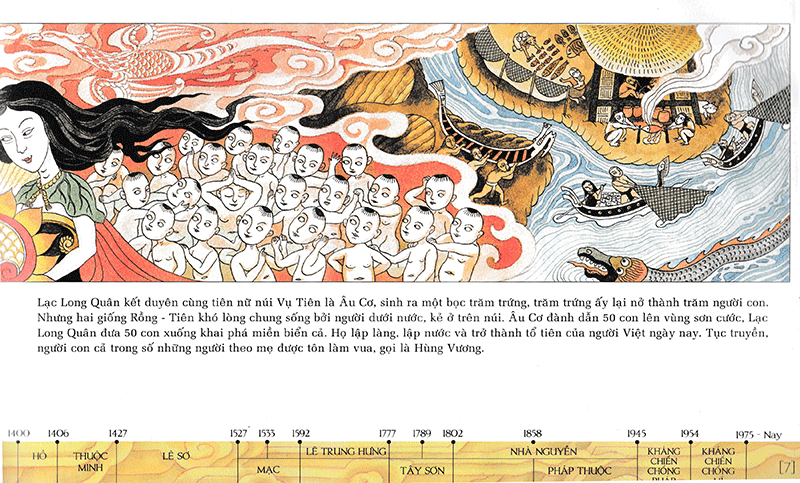 Lạc Long Quân kết duyên cùng tiên nữ núi Vụ Tiên là Âu Cơ, sinh ra một bọc trăm trứng, trăm trứng ấy lại nở thành trăm người con.
Nhưng hai giống Rồng - Tiên khó lòng chung sống bởi người dưới nước, kẻ ở trên núi. Âu Cơ đành dẫn 50 con lên vùng sơn cước, Lạc
Long Quân đưa 50 con xuống khai phá miền biển cả. Họ lập làng, lập nước và trở thành tổ tiên của người Việt ngày nay. Tục truyền,
người con cả trong số những người theo mẹ được tôn làm vua, gọi là Hùng Vương.
1400 1406 1427 1527 1533 1592 1777 1789 1802 1858 1945 1954 1975 - Nay
HỒ
THUỘC
MINH
LÊ SƠ
MẠC
LÊ TRUNG HƯNG
TÂY SƠN
NHÀ NGUYỄN
PHÁP THUỘC
KHÁNG
CHIẾN
CHỐNG
KHÁNG
CHIẾN
CHỐNG
[7]